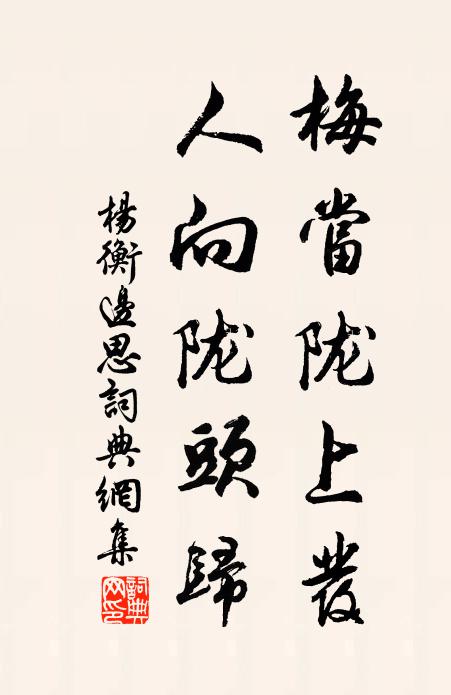 梅當陇上發
人向陇頭歸
楊衡邊思詞典網集
詞典網印